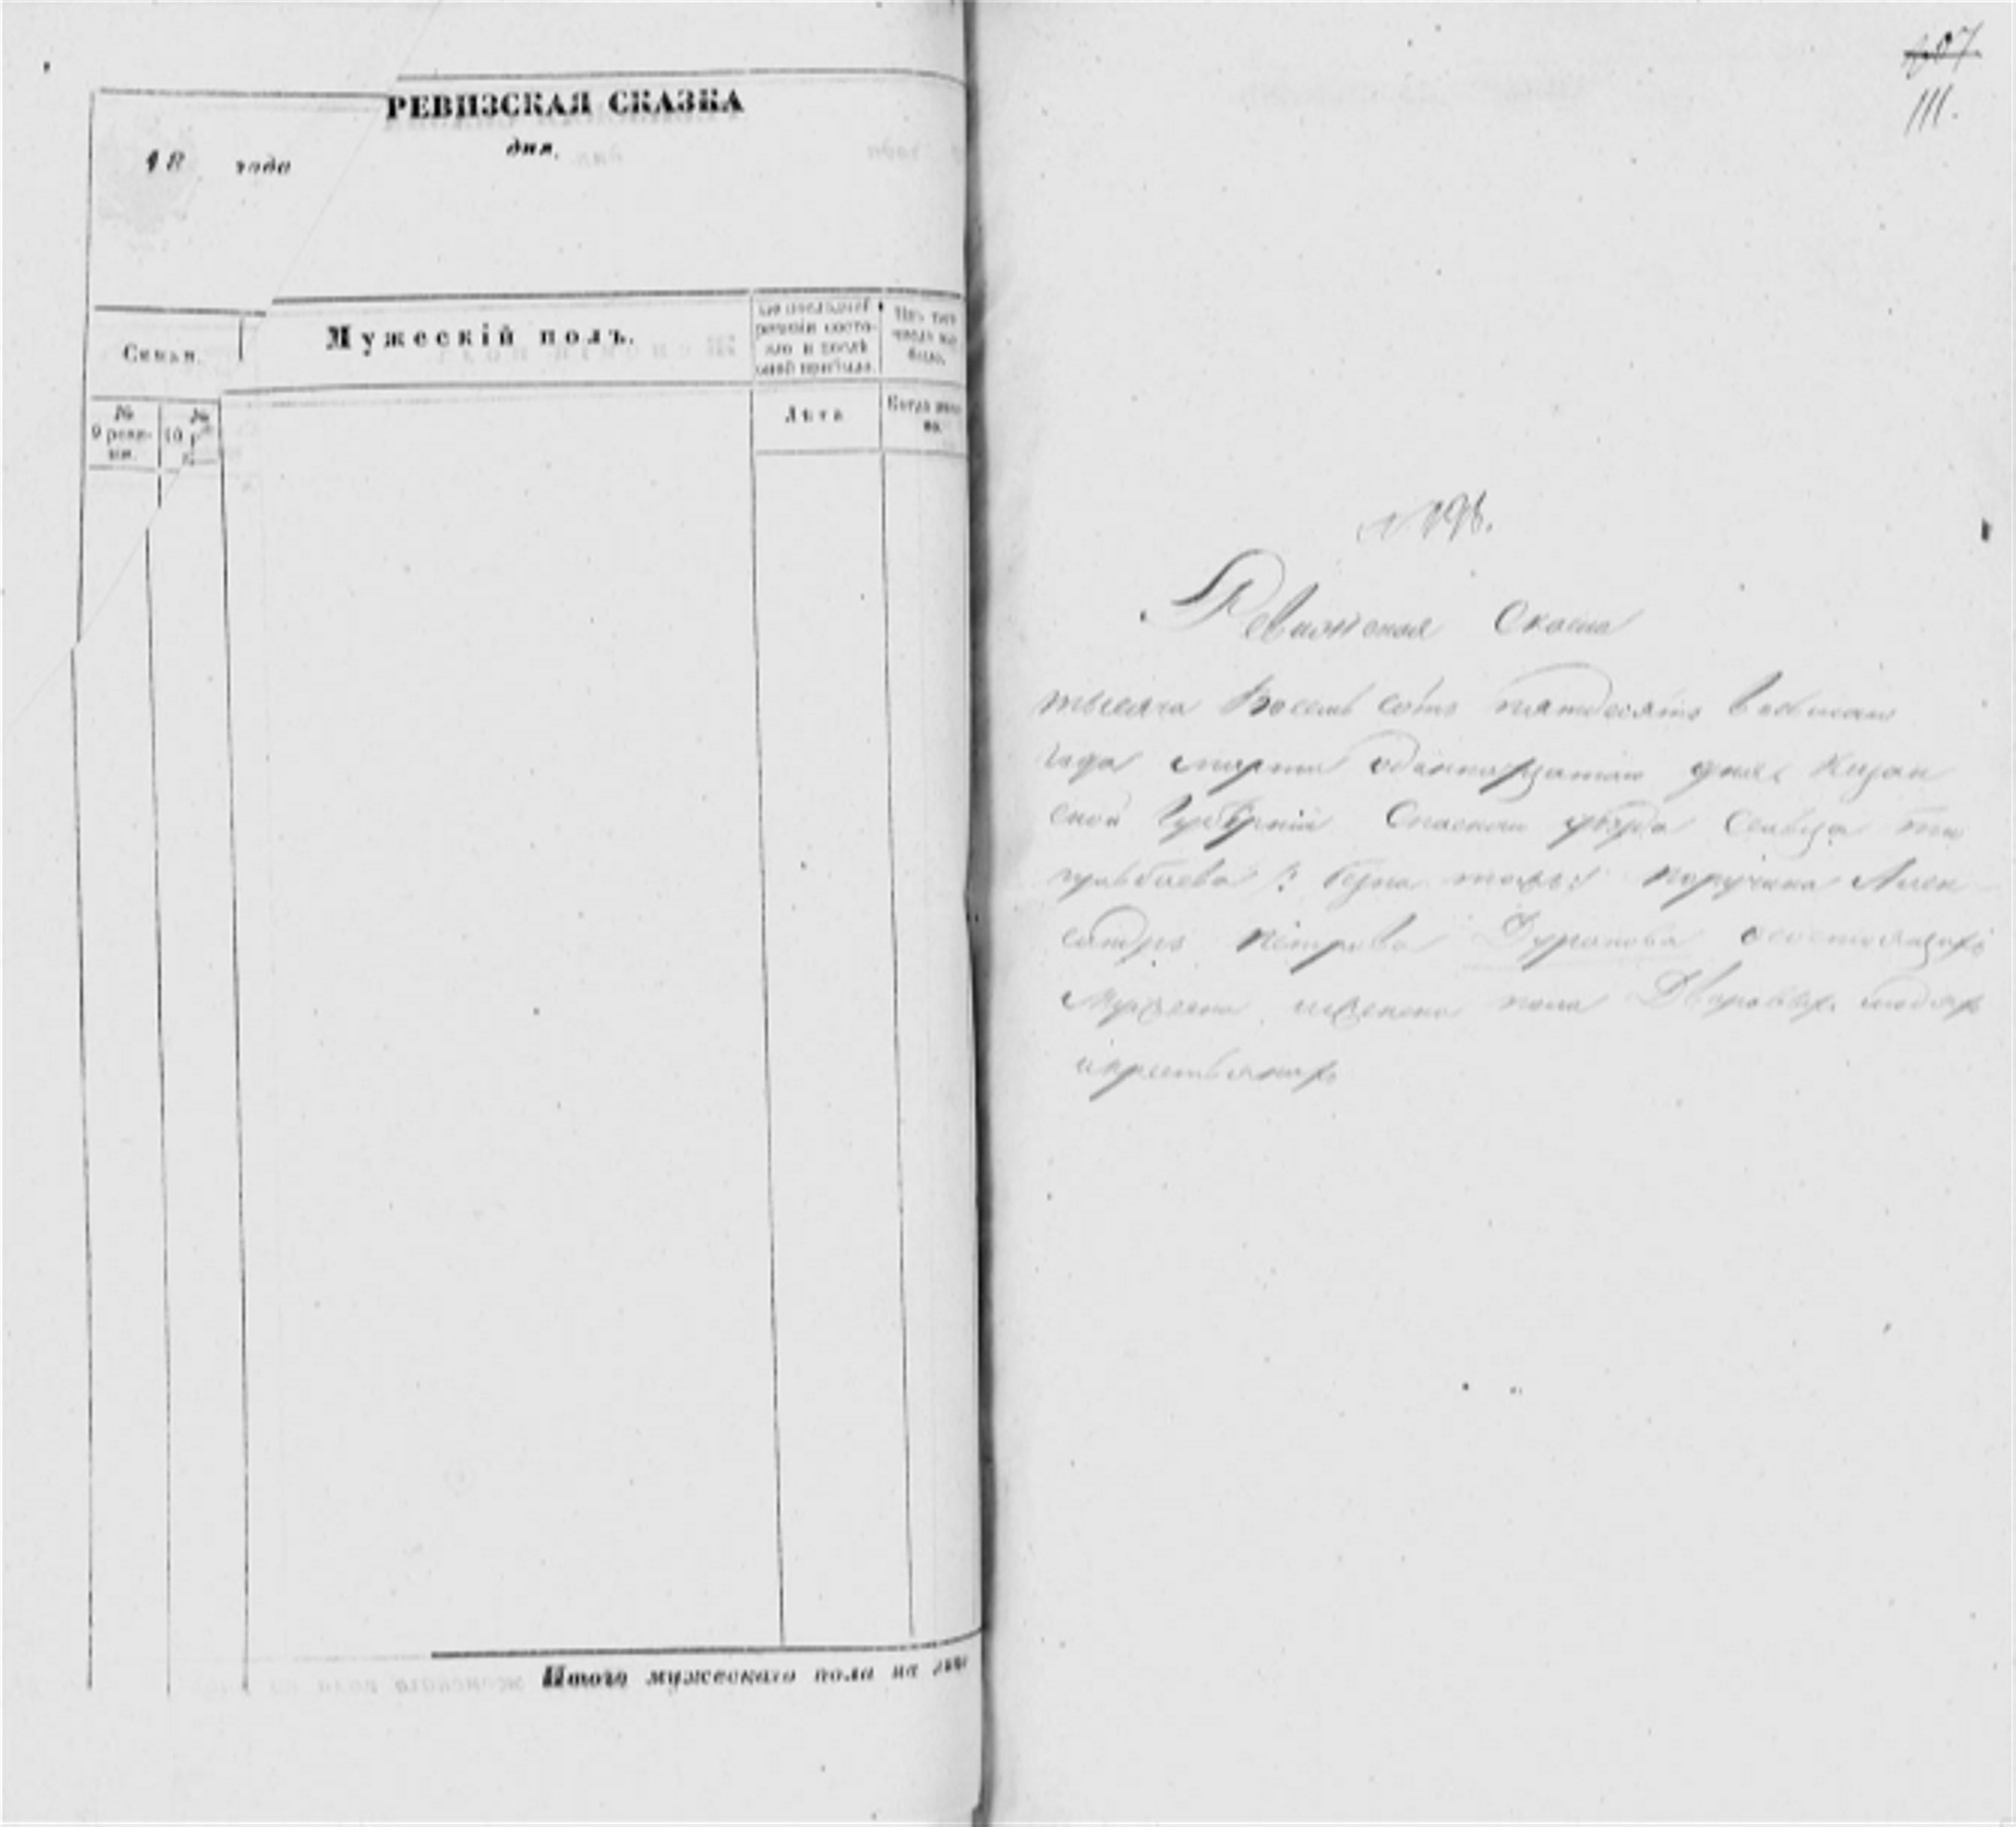 РЕВИЗСКАЯ СКАЗКА
18 года дня,
Семьи.
Мужескій полъ.
По последней ревизіи состояло и после оной прибыло.
Изъ того числа выбыло.
№ 9 ревизіи.
№ 10
Лѣта
Когда именно.
Итого мужескаго пола на лицо
107
111.
№ 198.
Ревизская Скаска
тысеча Восемь сотъ пятдесятъ восмаго
года марта одиннадцатаго дня Казан
ской Губѣрніи Спаскаго уѣзда Сельца
Безна тожъ:/ поручика Алек
сандра Петрова осостоящихъ
Мужеска иженска пола Дворовыхъ людяхъ
икрестьянахъ